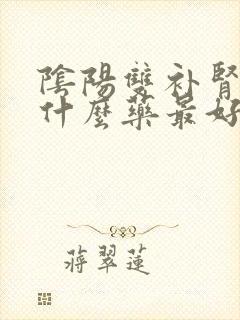 陰陽雙补腎
什麼藥最好
蔣翠蓮